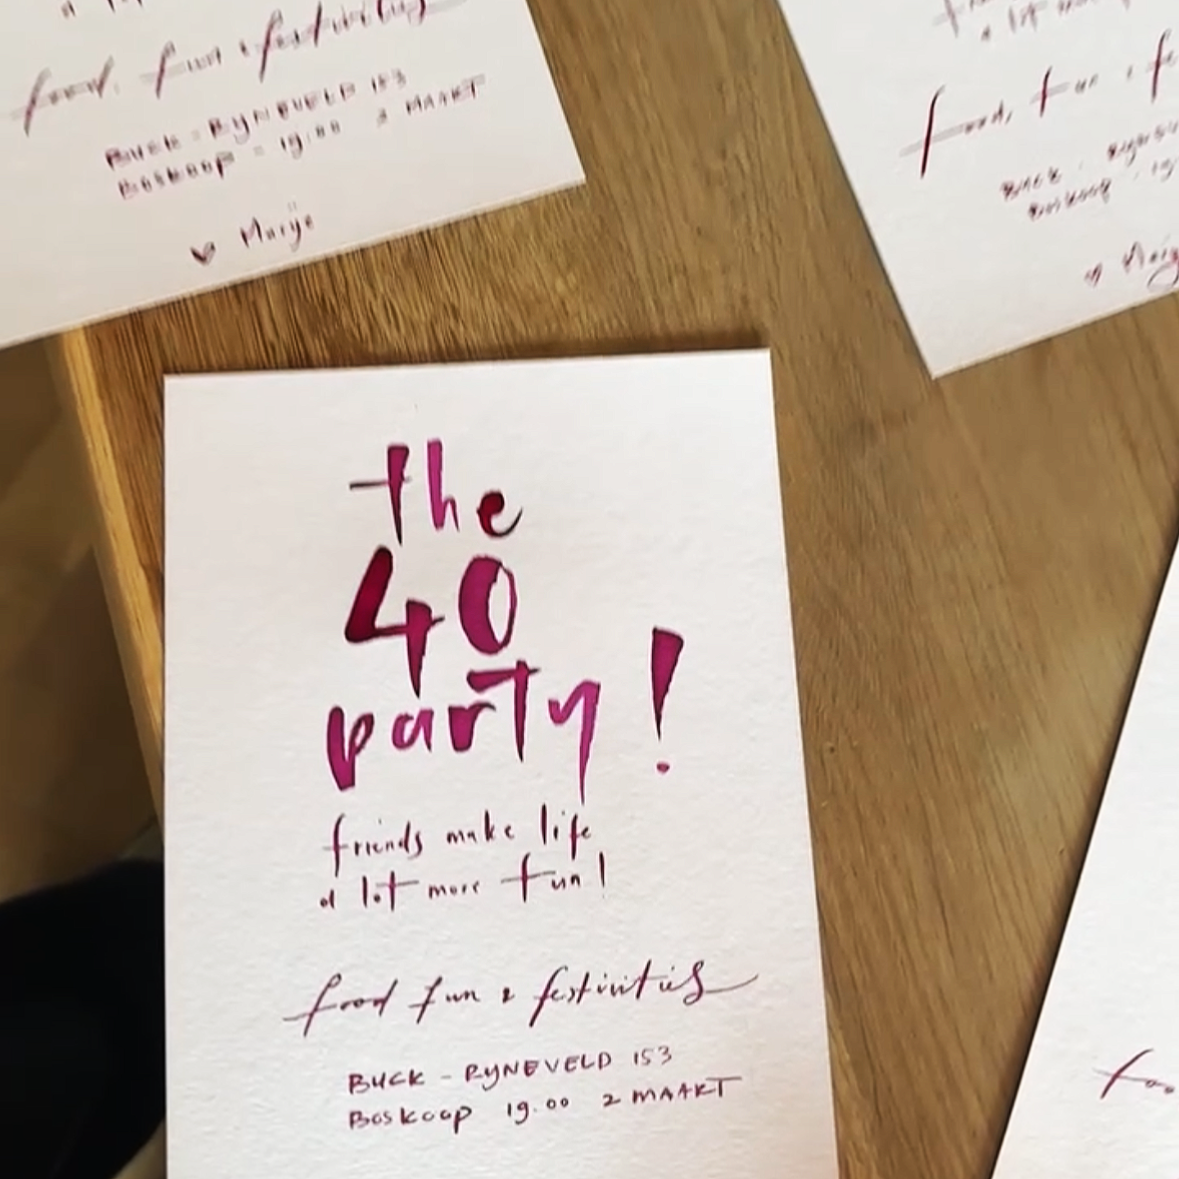 food, fun & festivities
BUCK - RYNEVELD 153
BOSKOOP - 19.00 2 MAART
♥ Marije
a lot
food, fun & fe
BUCK - Ryneve
Boskoop - 19
the
40
party!
friends make life
a lot more fun!
food fun & festivities
BUCK - RYNEVELD 153
BOSKOOP 19.00 2 MAART